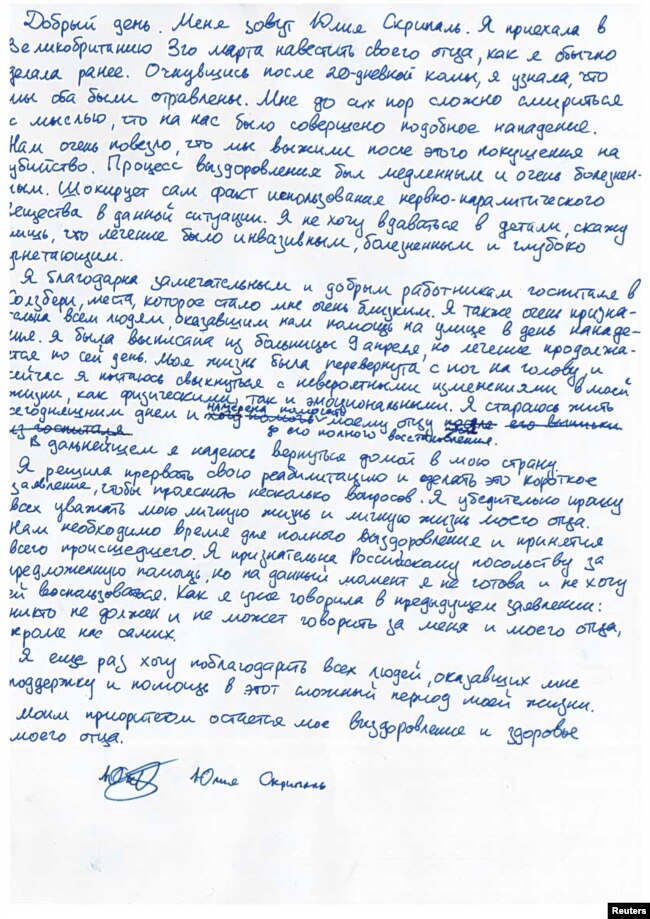 Добрый день. Меня зовут Юлия Скрипаль. Я приехала в
Великобританию 3го марта навестить своего отца, как я обычно
делала ранее. Очнувшись после 20-дневной комы, я узнала, что
мы оба были отравлены. Мне до сих пор сложно смириться
с мыслью, что на нас было совершено подобное нападение.
Нам очень повезло, что мы выжили после этого покушения на
убийство. Процесс выздоровления был медленным и очень болезнен-
ным. Шокирует сам факт использования нервно-паралитического
вещества в данной ситуации. Я не хочу вдаваться в детали, скажу
лишь, что лечение было инвазивным, болезненным и глубоко
угнетающим.
Я благодарна замечательным и добрым работникам госпиталя в
Солзбери, места, которое стало мне очень близким. Я также очень призна-
тельна всем людям, оказавшим нам помощь на улице в день нападе-
ния. Я была выписана из больницы 9 апреля, но лечение продолжа-
ется по сей день. Моя жизнь была перевернута с ног на голову, и
сейчас я пытаюсь свыкнуться с невероятными изменениями в моей
жизни, как физическими, так и эмоциональными. Я стараюсь жить
намерена помогать
сегодняшним днем и хочу помочь моему отцу после его выписки
из госпиталя до его полного восстановления.
В дальнейшем я надеюсь вернуться домой в мою страну.
Я решила прервать свою реабилитацию и сделать это короткое
заявление, чтобы прояснить несколько вопросов. Я убедительно прошу
всех уважать мою личную жизнь и личную жизнь моего отца.
Нам необходимо время для полного выздоровления и принятия
всего происшедшего. Я признательна Российскому посольству за
предложенную помощь, но на данный момент я не готова и не хочу
ей воспользоваться. Как я уже говорила в предыдущем заявлении:
никто не должен и не может говорить за меня и моего отца,
кроме нас самих.
Я еще раз хочу поблагодарить всех людей, оказавших мне
поддержку и помощь в этот сложный период моей жизни.
Моим приоритетом остается мое выздоровление и здоровье
моего отца.
Юлия Скрипаль
Reuters